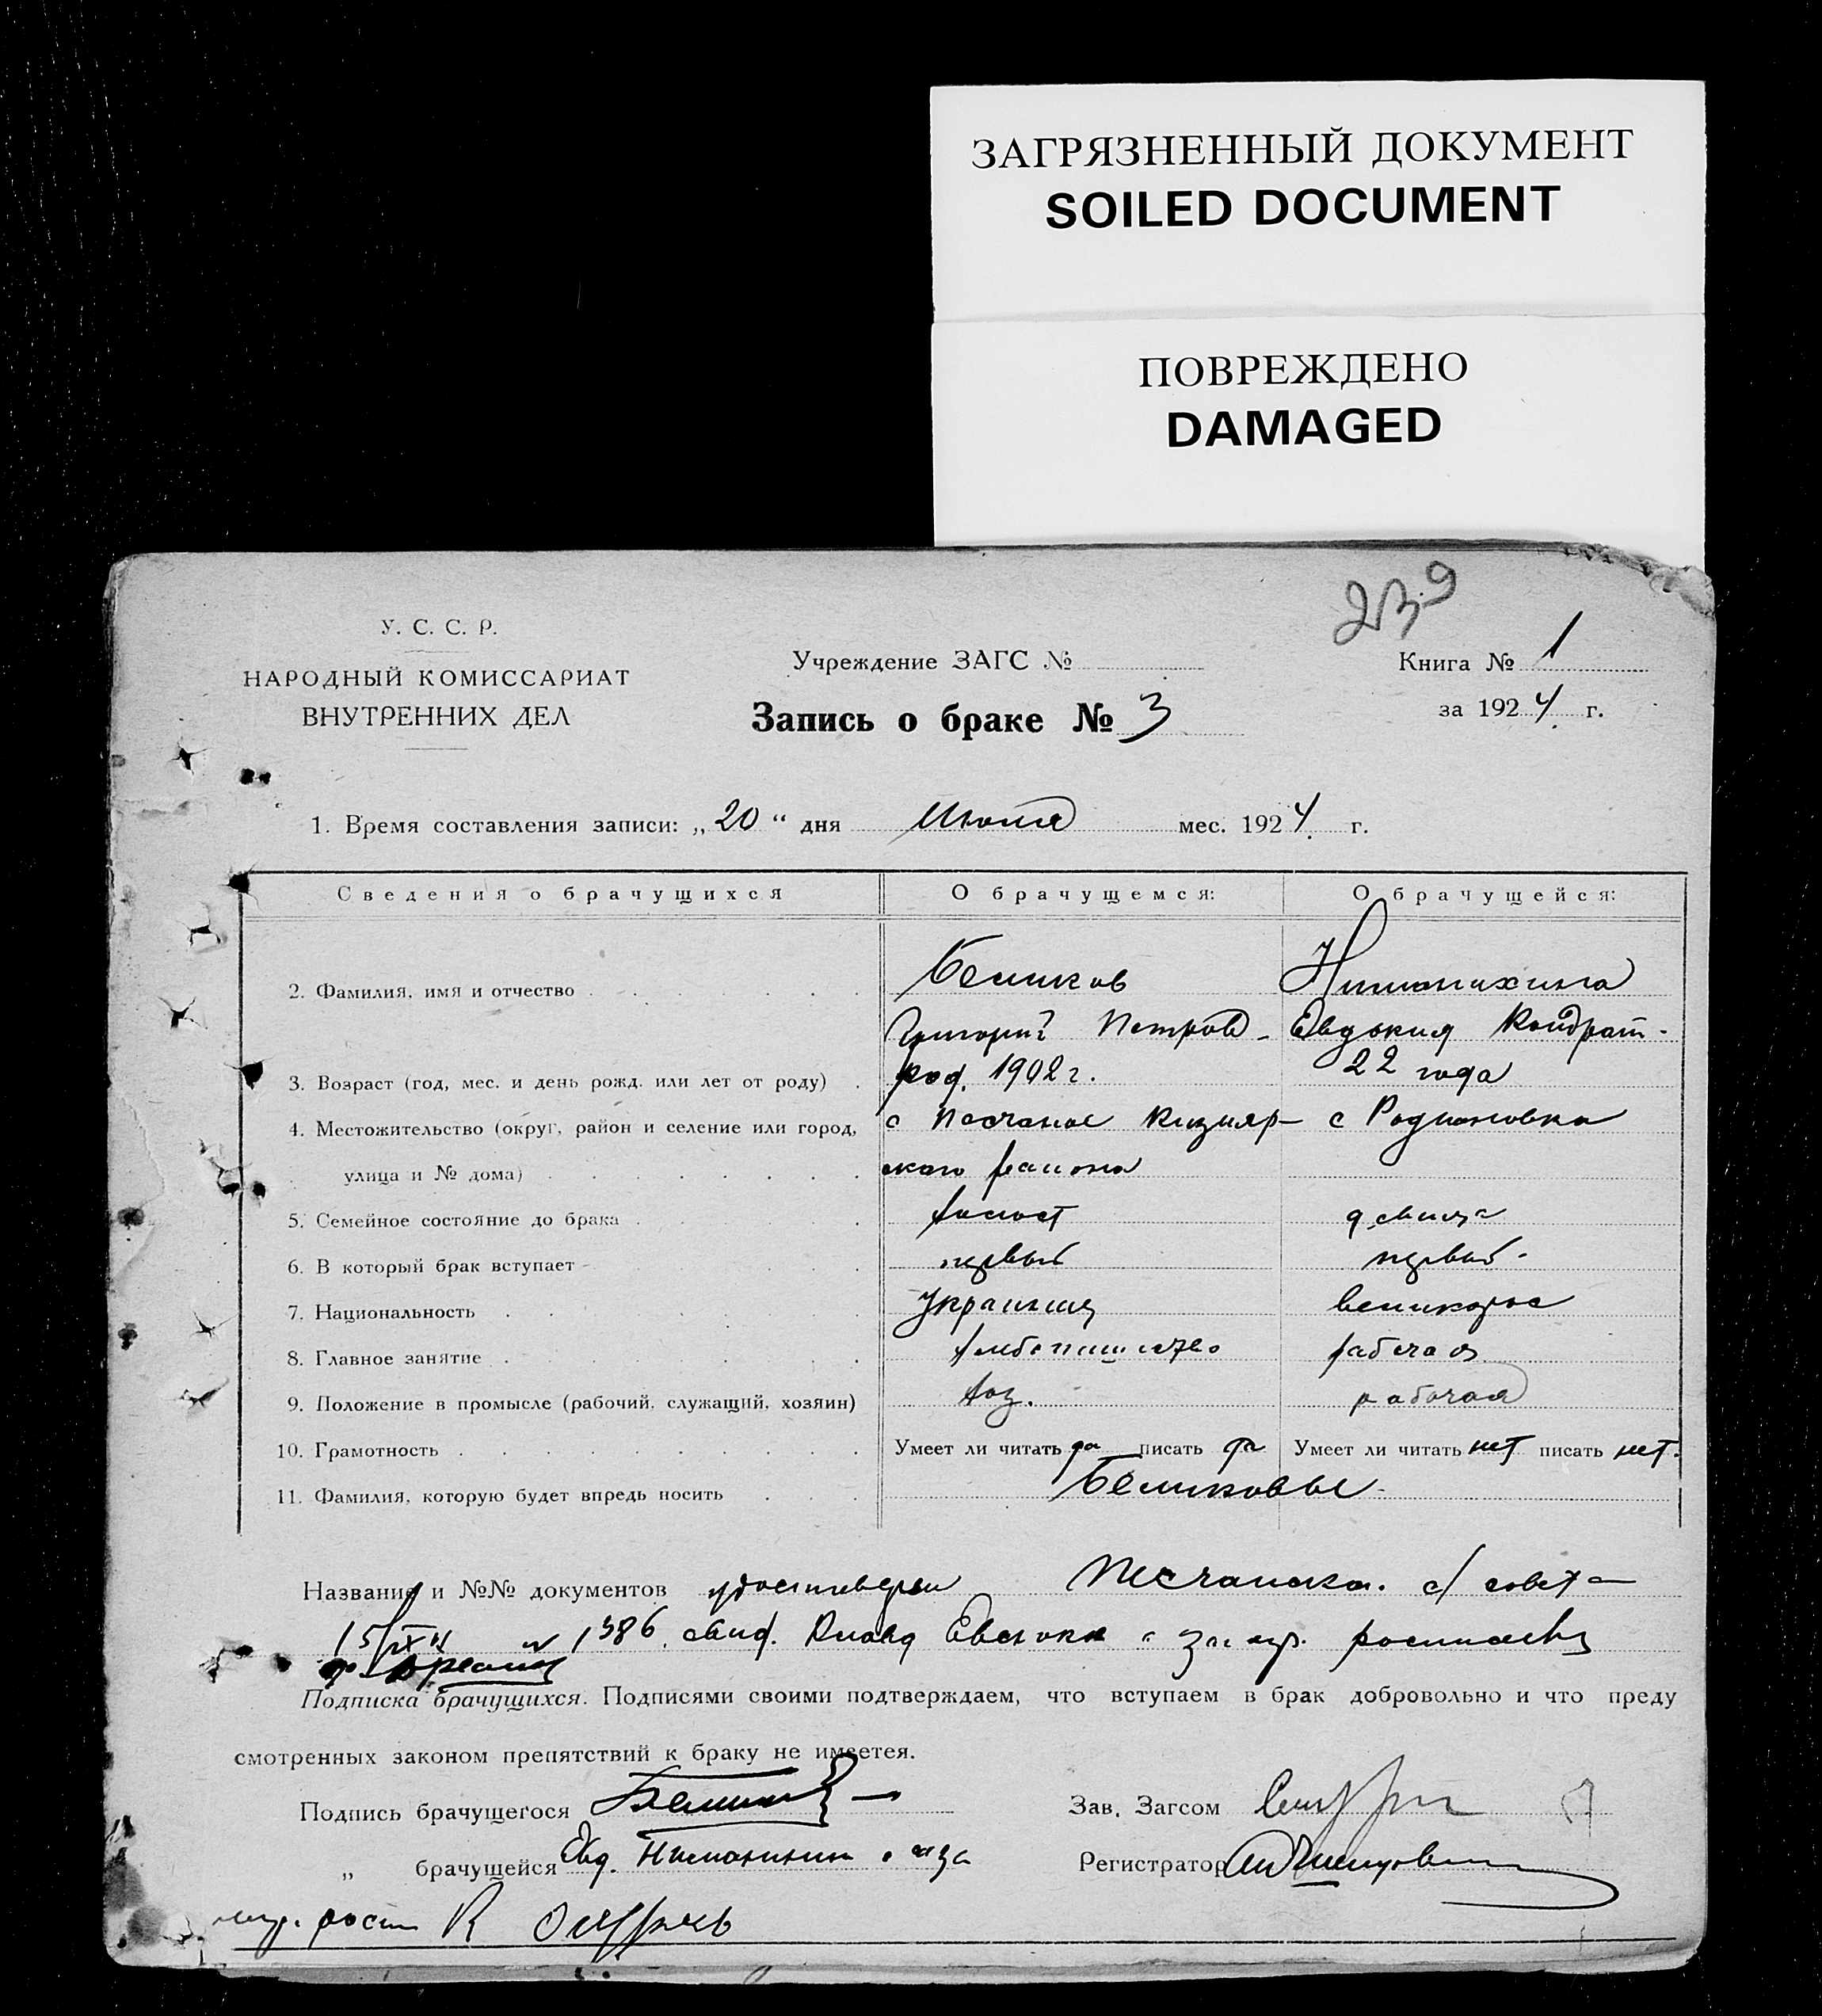 ЗАГРЯЗНЕННЫЙ ДОКУМЕНТ
SOILED DOCUMENT
ПОВРЕЖДЕНО
DAMAGED
239
У. С. С. Р.
НАРОДНЫЙ КОМИССАРИАТ
ВНУТРЕННИХ ДЕЛ
Учреждение ЗАГС №
Запись о браке № 3
Книга № 1
за 1924 г.
1. Время составления записи: „20“ дня Июля мес. 1924 г.
Сведения о брачущихся О брачущемся: О брачущейся:
2. Фамилия, имя и отчество Беликов
Григорий Петров- Евдокия Кондрат-
3. Возраст (год, мес. и день рожд. или лет от роду) род. 1902 г. 22 года
4. Местожительство (округ, район и селение или город, с Песчаное Кизияр- с Родионовка
улица и № дома) ского района
5. Семейное состояние до брака холост девица
6. В который брак вступает первый первый
7. Национальность Украинец великорос
8. Главное занятие хлебопашество рабочая
9. Положение в промысле (рабочий, служащий, хозяин) хоз. рабочая
10. Грамотность Умеет ли читать да писать да Умеет ли читать нет писать нет.
11. Фамилия, которую будет впредь носить Беликовы
Название и №№ документов удостоверен Песчанск. с/совета
15/ № 1386
Подписка брачущихся. Подписями своими подтверждаем, что вступаем в брак добровольно и что преду
смотренных законом препятствий к браку не имеется.
Подпись брачущегося Беликов Зав. Загсом
„ брачущейся Евд. за Регистратор